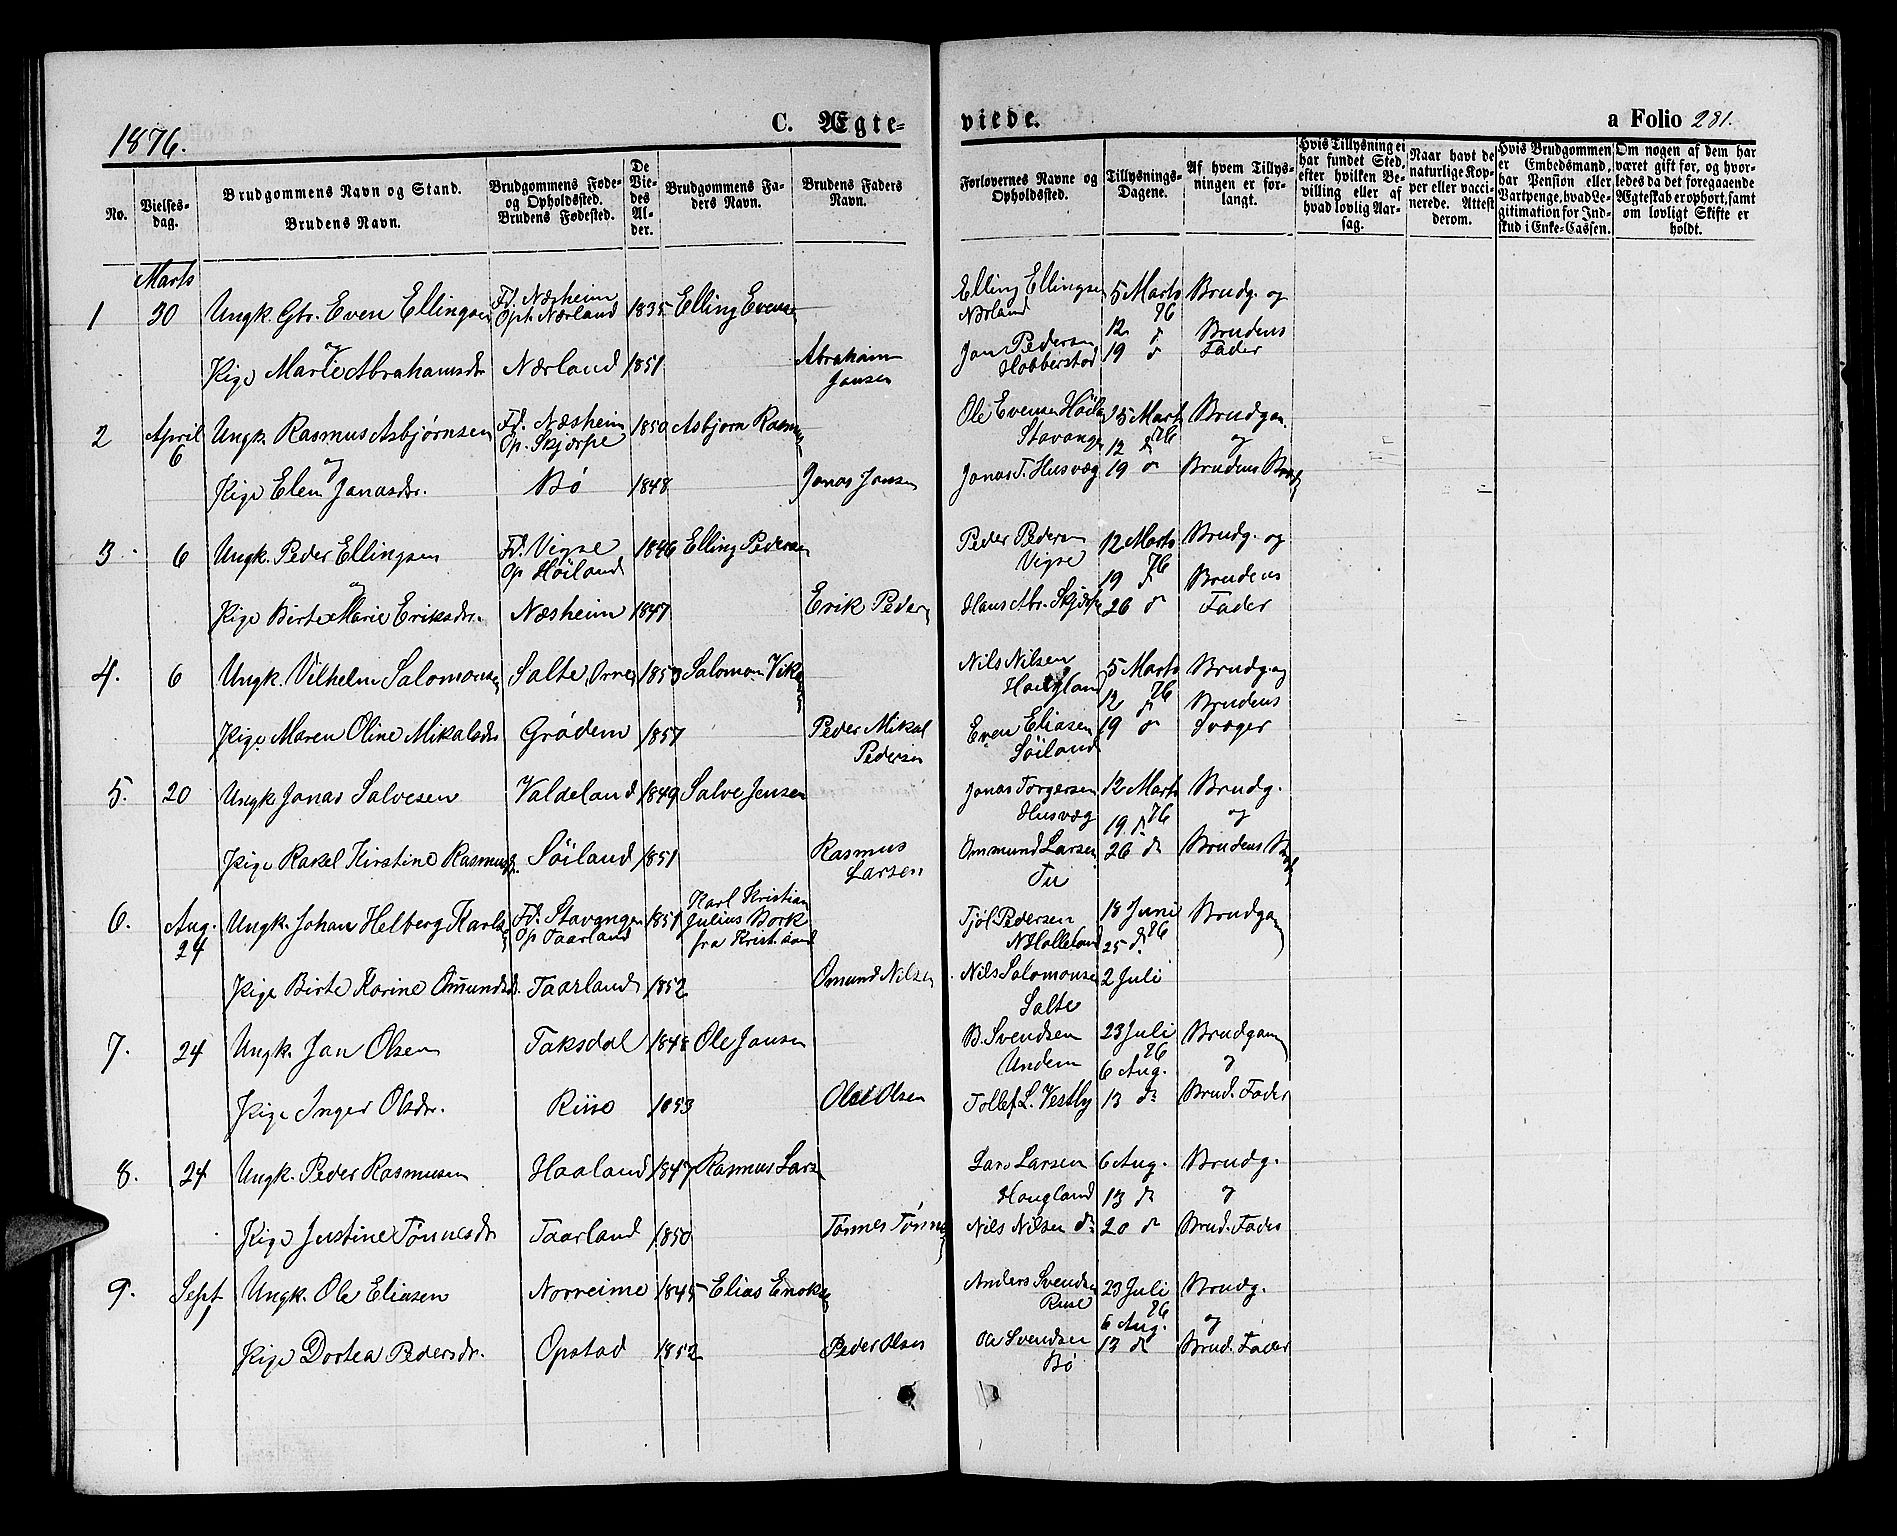 1876.
C. Ægte-
viede.
a Folio 281.
No.
Vielses-
dag.
Brudgommens Navn og Stand.
Brudens Navn.
Brudgommens Føde-
og Opholdssted.
Brudens Fødested.
De
Vie-
des
Al-
der.
Brudgommens Fa-
ders Navn.
Brudens Faders
Navn.
Forlovernes Navne og
Opholdssted.
Tillysnings-
Dagene.
Af hvem Tillys-
ningen er for-
langt.
Hvis Tillysning ei
har fundet Sted,
efter hvilken Be-
villing eller af
hvad lovlig Aar-
sag.
Naar havt de
naturlige Kop-
per eller vacci-
nerede. Attest
derom.
Hvis Brudgommen
er Embedsmand,
har Pension eller
Vartpenge, hvad Le-
gitimation for Ind-
skud i Enke-Cassen.
Om nogen af dem har
været gift før, og hvor-
ledes da det foregaaende
Ægteskab er ophørt, samt
om lovligt Skifte er
holdt.
Marts
1 30 Ungk. Gbr. Even Ellingsen Fd. Næsheim Oph. Nærland 1835 Elling Evensen
Elling Ellingsen Nærland 5 Marts 76 Brudg. og
og
Pige Marie Abrahamsdr. Nærland 1851 Abraham Jansen
Jan Pedersen Hobberstad 12 d 19 d Brudens Fader
2 April 6 Ungk. Rasmus Asbjørnsen Fd. Næsheim Op. Skjærpe 1850 Asbjørn Rasmusen
Ole Evensen Høiland Stavanger 5 Marts 76 Brudgom
og
Pige Elen Jonasdr. Bø 1848 Jonas Jonsen
Jonas T. Husvæg 12 d 19 d og Brudens Brodr
3 6 Ungk. Peder Ellingsen Fd. Vigre Op Høiland 1846 Elling Pedersen
Peder Pedersen Vigre 12 Marts 76 Brudg. og
og
Pige Birte Marie Eriksdr. Næsheim 1847 Erik Peders
Hans Abr. Skjærpe 19 d 26 d Brudens Fader
4. 6 Ungk. Vilhelm Salomonsen Salte, Orre 1853 Salomon
Nils Nilsen Haugland 5 Marts 76 Brudg og
Pige Maren Oline Mikalsdr Grødem 1857 Peder Mikal Pedersen
Even Eliasen Søiland 12 d 19 d Brudens Svoger
5. 20 Ungk Jonas Salvesen Valdeland 1849 Salve Jensen
Jonas Torgersen Husvæg 12 Marts 76 Brudg. og
Pige Rakel Kirstine Rasmusdr. Søiland 1851 Rasmus Larsen
Ommund Larsen Tu 19. d 26 d Brudens Brodr
6. Aug. 24 Ungk. Johan Helberg Karls Fd. Stavanger Op Taarland 1851 Karl Kristian Julius Bork fra Krist.sand
Tjøl Pedersen N Holleland 18 Juni 76 Brudgom
Pige Birte Karine Omundsdr. Taarland 1852 Omund Nilsen
Nils Salomonsen Salte 25 d. 2 Juli
7. 24 Ungk. Jan Olsen Taksdal 1848 Ole Jansen
B. Svendsen Undem 23 Juli 76 Brudgom og
Pige Inger Olsdr. Riise 1853 Ole Olsen
Tollef L. Vestly 6 Aug. 13 d. Brud. Fader
8. 24 Ungk. Peder Rasmusen Haaland 1847 Rasmus Larsn
Lars Larsen Haugland 6 Aug. 13 d Brudg. og
Pige Justine Tønnesdr Taarland 1850 Tønnes Tønnes
Nils Nilsen d. 20 d Brud. Fader
9. Sept 7 Ungk. Ole Eliasen Norreime 1845 Elias Enoks
Anders Svendsen Riise 23 Juli 76 Brudg. og
Pige Dortea Pedersdr. Opstad 1852 Peder Olsen
Ole Svendsen Bø 6 Aug. 13 d Brud. Fader